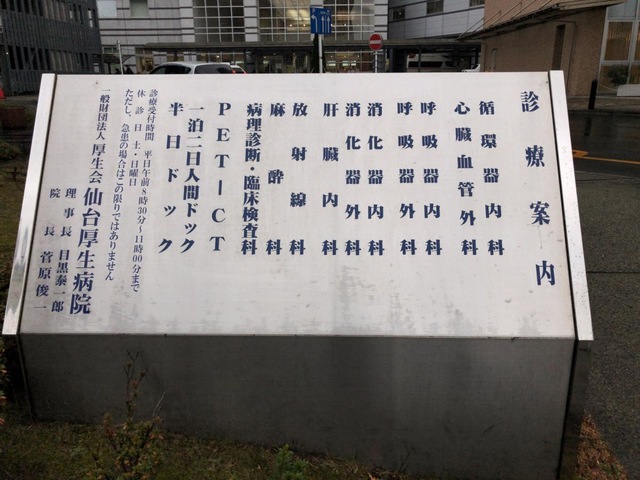 診療案内
循環器内科
心臓血管外科
呼吸器内科
呼吸器外科
消化器内科
消化器外科
肝臓内科
放射線科
麻酔科
病理診断・臨床検査科
PET-CT
一泊二日人間ドック
半日ドック
診療受付時間 平日午前8時30分〜11時00分まで
休診日 土・日曜日
ただし、急患の場合はこの限りではありません
一般財団法人 厚生会 仙台厚生病院
理事長 目黒泰一郎
院長 菅原俊一